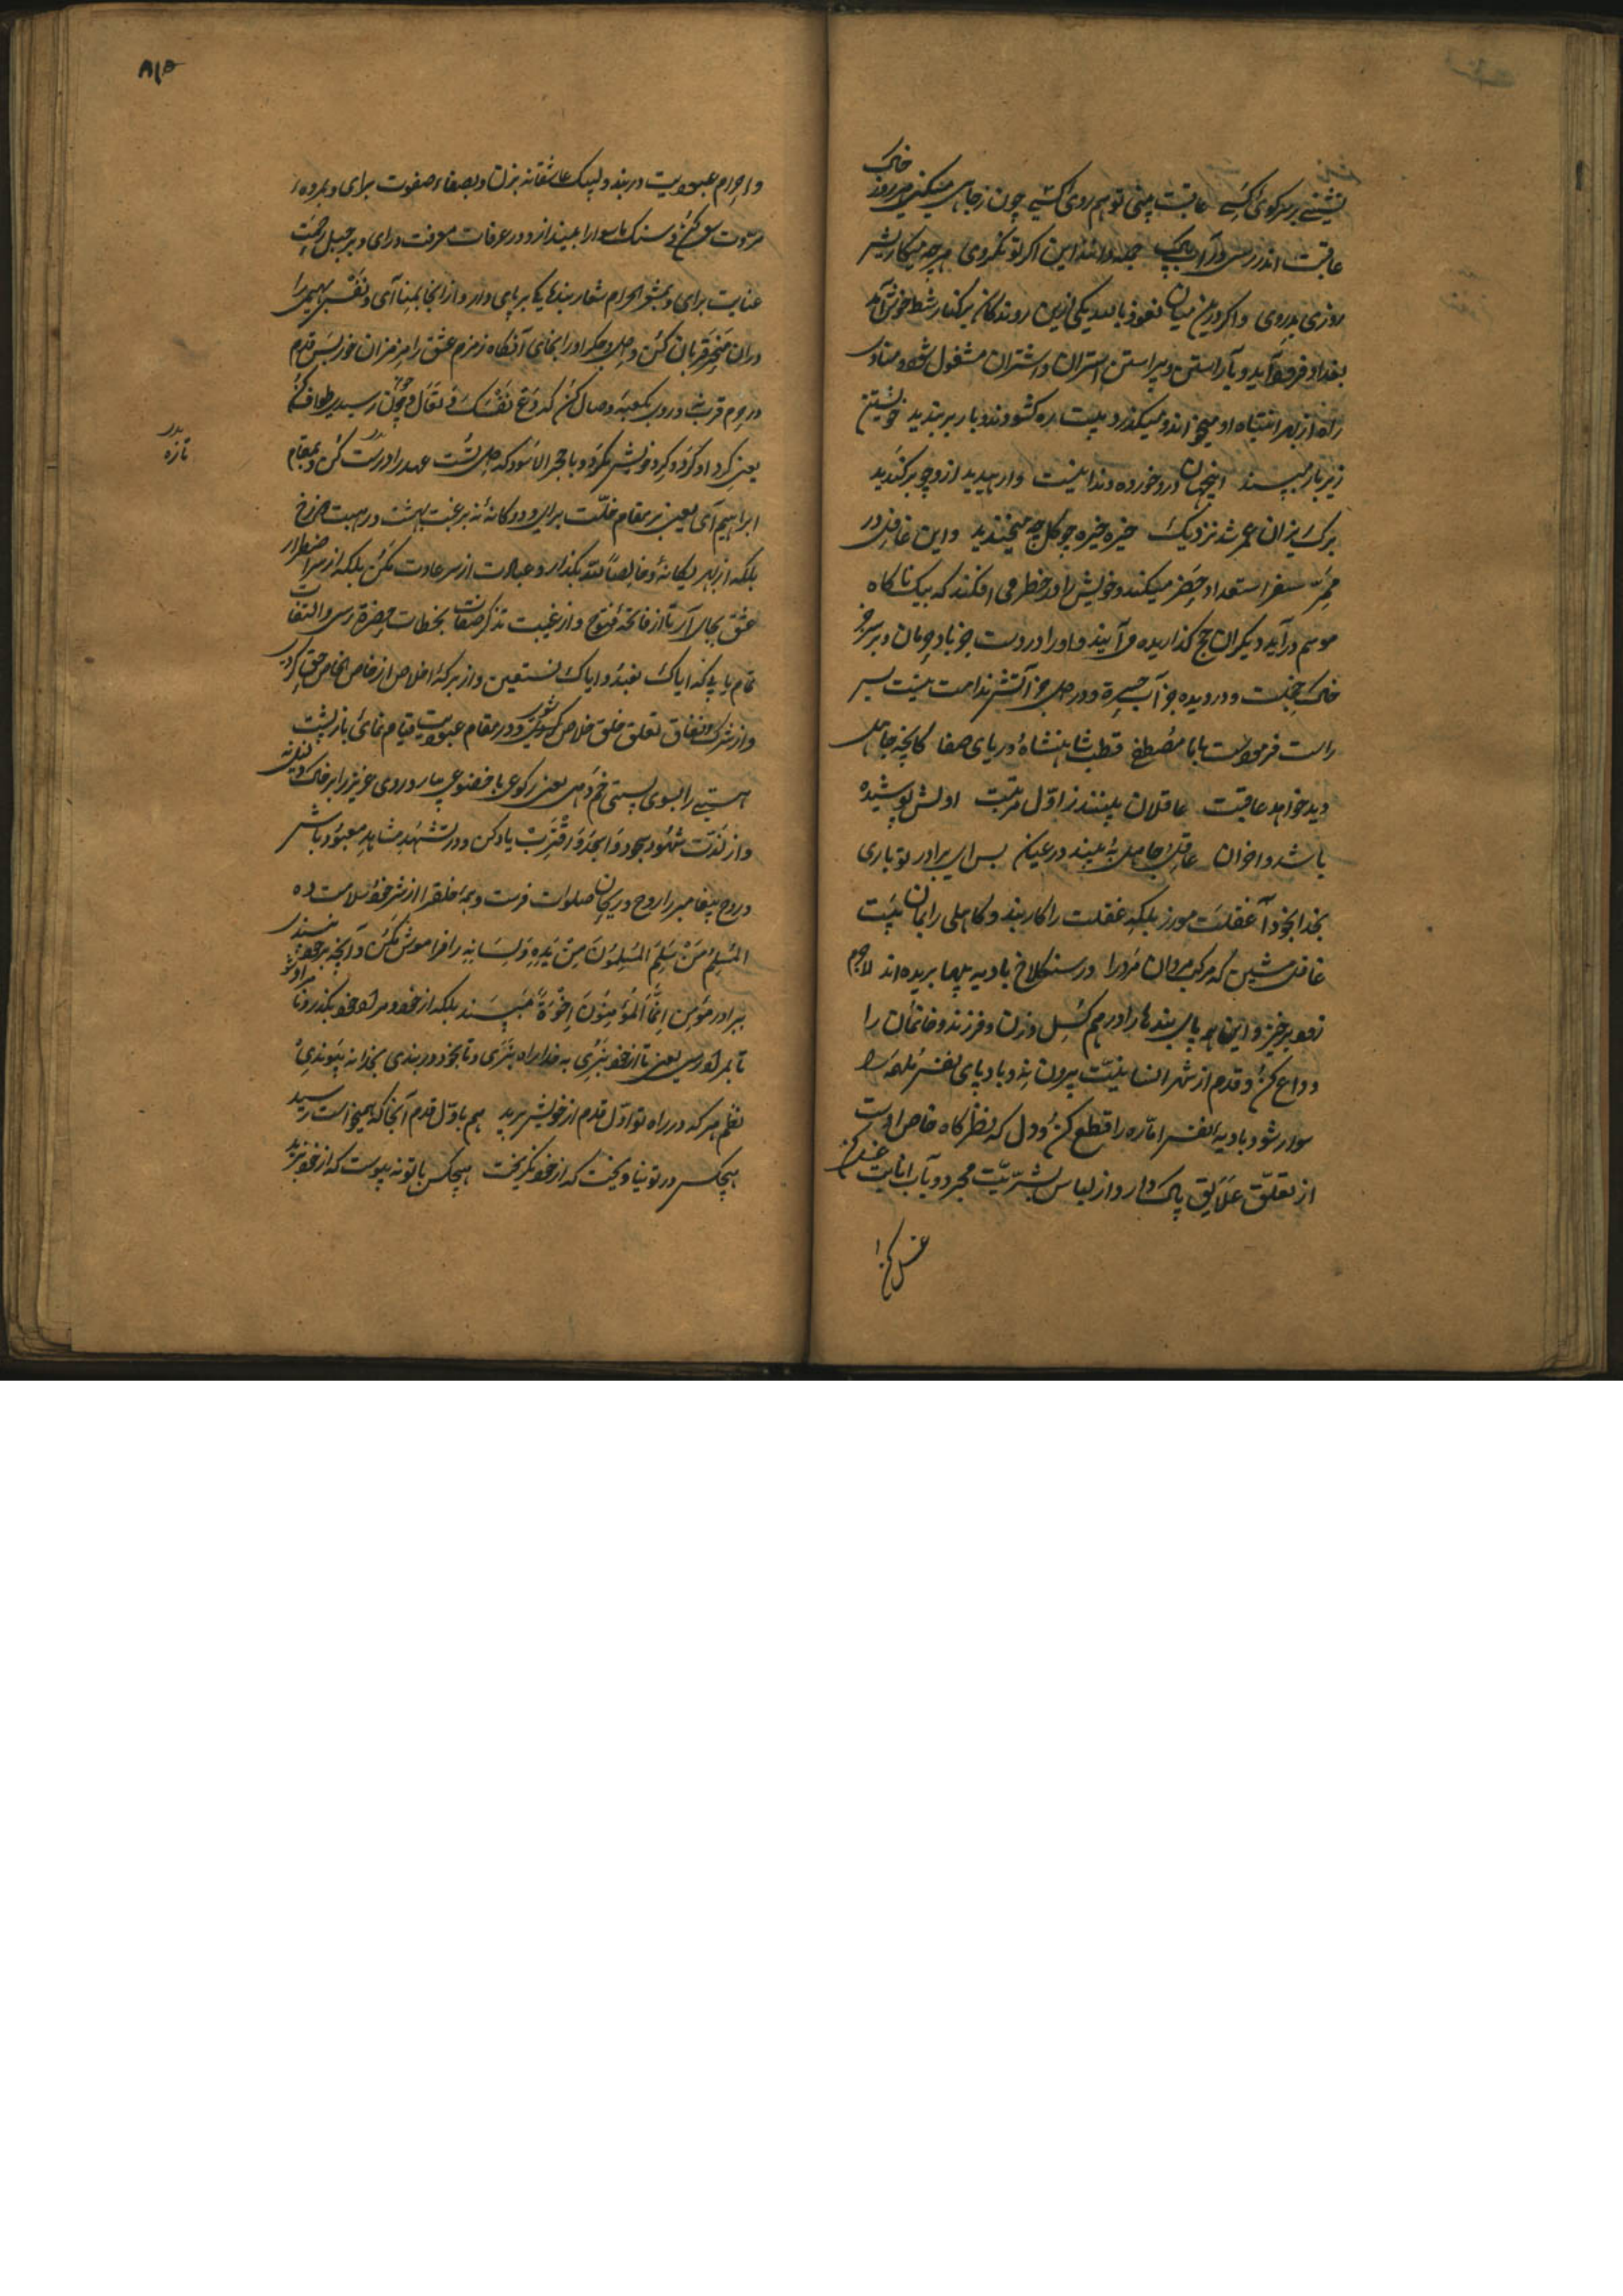 نشینی بر سر کوی کسی عاقبت بینی تو هم روی کسی چون ز چاهی میکنی هر روز خاک
عاقبت اندر رسی در آب پاک جمله دانند این اگر تو نگروی هر چه میکاریش
روزی بدروی و اگر درین میان نعوذ بالله یکی ازین روندگان بر کنار شط خوش آید
بغداد فرود آید و بآراستن و پیراستن استران و اشتران مشغول شود و منادی
راه از بهر انتباه او میخواند و میگذرد بیت ره گشودند و بار بربندید خویشتن
زیر بار مپسندید اینجهان درد خورده وندا بیت وارهیدید ازو چو برکندید
برگ ریزان عمر شد نزدیک خیره خیره چو گل چه میخندید و این غافل در
ممر سفر استعداد حضر میکند و خویش را در خطر می افکند که بیک ناگاه
موسم درآید دیگران حج گذاریده می آیند و او را در دست جز باد حرمان و بر سر جز
خاک خجلت و در دیده جز آب حسرة و در دل جز آتش ندامت نیست بیت بس
راست فرموداست بابا مصطفی قطب شاهنشاه دریای صفا کانچه جاهل
دید خواهد عاقبت عاقلان بینند ز اول مرتبت اولش پوشیده
باشد و آخر آن عاقل و جاهل ببیند در عیان پس ای برادر تو باری
بخدا بخود آ غفلت مورز بلکه غفلت را کار بند و کاهلی را بمان بیت
غافل منشین که مرکب مردان مرد را در سنگلاخ بادیه پیها بریده اند لاجرم
زود برخیز و این همه پای بندها را درهم گسل و زن و فرزند و خانمان را
وداع کن و قدم از شهر انسانیت بیرون نه و بادپای نفس ملهمه را
سوار شو و بادیه النفس اماره را قطع کن و دل که نظرگاه خاص اوست
از تعلق علایق پاک دار و از لباس بشریت مجرد و بآب انابت غسل کن
غسل کن
۸۱۵
و احرام عبودیت دربند و لبیک عاشقانه بزن و بصفاء صفوت برآی و بمروه
مروت سعی کن و سنگ ماسوا را بینداز و در عرفات معرفت درآی و بر جبل رحمت
عنایت برآی و بمشعر الحرام شعار بندهای بر پای دار و از آنجا بمنا آی و نفس بهیمی را
در آن منحر قربان کن و دل و جگر او را آنجا آنگاه زمزم عشق را مزمزان خور پس قدم
در حرم قربت و روی بکعبه وصال کن که دع نفسک و تعال و چون رسیدی طواف کن
یعنی گرد او گرد و گرد خویش مگرد و با حجر الاسود که دل تست عهد را درست کن و بمقام
بدر
تازه
ابراهیم آی یعنی بر مقام خلت برآی و دوگانه نه برغبت بهشت و رهبت دوزخ
بلکه از بهر یگانه و خالصا لله بگذار و عبادت از سر عادت مکن بلکه از سر اضطرار
عشق بجای آر تا از فاتحه فتوح و از غیبت تذکر صفات بخطاب حضرة رسی و التفات
تمام یابی که ایاک نعبد و ایاک نستعین و از برکه اخلاص از خاص الخاص حق گردی
و از شرک و نفاق تعلق خلق خلاص شوی و در مقام عبودیت قیام نمای باز پشت
هستی را بسوی پستی خم ده یعنی رکوعی با خضوعی بیار و روی عزیز را بر خاک
و از لذت شهود سجود و اسجد و اقترب یاد کن و در تشهد مشاهد معبود باش
و روح پیغامبر را روح و ریحان صلوات فرست و همه خلق را از شر خود سلامت ده
المسلم من سلم المسلمون من یده و لسانه را فراموش مکن و آنچه بر خود نپسندی
ببرادر مؤمن انما المؤمنون اخوة مپسند بلکه از خود و مراد خود بگذر و تا
تا بمراد رسی یعنی تا از خود نبری به خدا راه نبری و تا بخود در بندی بخدا نه پیوندی
نظم هر که در راه تو اول قدم از خویش برید هم باول قدم آنجا که همیخواست رسید
هیچکس در تو نیاویخت که از خود نگریخت هیچکس با تو نه پیوست که از خود نبرید